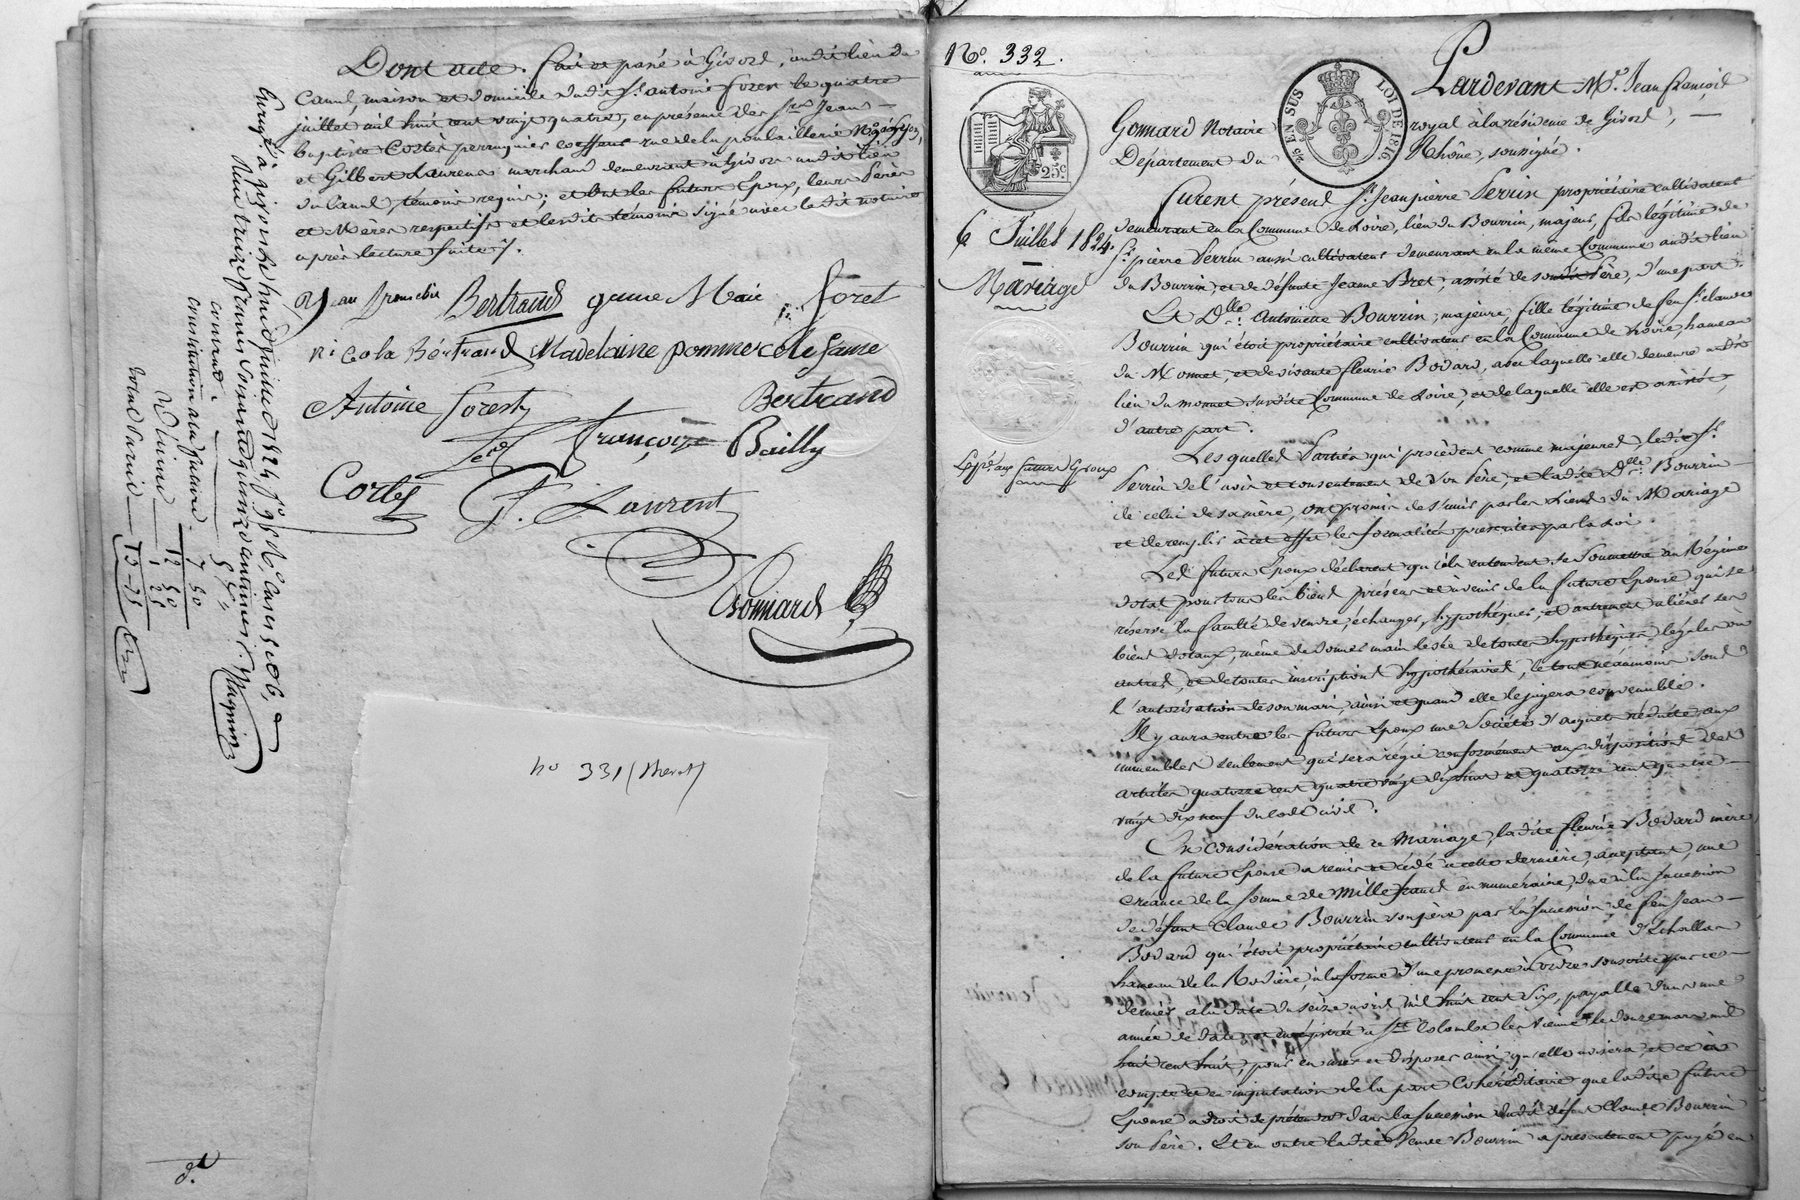 Dont acte. fait et passé à Givors, audit lieu du
Canal, maison et domicile dudit Sr. antoine forest le quatre
juillet mil huit cent vingt quatre, en présence des Srs. Jean
baptiste Cortès perruquier coeffeur rue de la poulaillerie
et Gilbert Laurent marchand demeurant à Givors audit lieu
du Canal, témoins requis; et ont les futurs Epoux, leurs Pères
et Mères respectifs et lesdits témoins signé avec ledit notaire
après lecture faite.
Bertrand forest
Bertrand Madelaine pommerole fame
Antoine foresty Bertrand
françoise Bailly
Cortes G. Laurent
Gonnard
Enregistré à givors le huit juillet 1824
no 331 (Therot)
No. 332.
25c
26 EN SUS LOI DE 1816
6 Juillet 1824.
Mariage
Expé. aux futurs Epoux
Pardevant Me. Jean françois
Gonnard Notaire royal à la résidence de Givors,
Département du Rhône, soussigné.
furent présens Sr. Jean pierre Perrin propriétaire cultivateur
demeurant en la Commune de Loire, lieu du Bourrin, majeur, fils légitime de
Sr. pierre Perrin aussi cultivateur demeurant en la même Commune audit lieu
du Bourrin, et de défunte Jeanne Bret, assisté de sondit Père, d'une part.
Et Dlle. Antoinette Bourrin, majeure, fille légitime de feu Sr. claude
Bourrin qui étoit propriétaire cultivateur en la Commune de Loire, hameau
du Monnet, et de vivante fleurie Bodard, avec laquelle elle demeure audit
lieu du monnet susdite Commune de Loire, et de laquelle elle est assistée,
d'autre part.
Lesquelles Parties qui procèdent comme majeures ledit Sr.
Perrin de l'avis et consentement de son Père, et ladite Dlle. Bourrin
de celui de sa mère, ont promis de s'unir par les Liens du Mariage
et de remplir à cet effet les formalités prescrites par la Loi.
Les futurs Epoux déclarent qu'ils entendent se Soumettre au Régime
dotal pour tous les biens présens et à venir de la future Epouse qui se
réserve la faculté de vendre, échanger, hypothéquer, et autrement aliéner ses
biens dotaux, même de donner main levée de toutes hypothèques légales ou
autres, et de toutes inscriptions hypothécaires, le tout néanmoins sous
l'autorisation de son mari, ainsi et quand elle le jugera convenable.
Il y aura entre les futurs Epoux une Société d'acquets réduite aux
immeubles seulement qui sera régie conformément aux dispositions des
articles quatorze cent quatre vingt dix huit et quatorze cent quatre
vingt dix neuf du code civil.
En considération de ce Mariage, ladite fleurie Bodard mère
de la future Epouse a remis et cédé à cette dernière, acceptant, une
créance de la somme de mille francs en numéraire, due à la succession
de défunt Claude Bourrin son père par la succession de feu Jean
Bodard qui étoit propriétaire cultivateur en la Commune d'Echallas
hameau de la Rodière, à la forme d'une promesse à ordre souscrite par ce
dernier à la date du seize avril mil huit cent six, payable dans une
année de date et enregistrée à Ste. Colombe les Vienne le douze mars mil
huit cent huit, pour en user et disposer ainsi qu'elle avisera, et ce à
compte et en imputation de la part Cohéréditaire que ladite future
Epouse a droit de prétendre dans la succession dudit défunt Claude Bourrin
son Père. Et en outre ladite Veuve Bourrin a présentement payé en